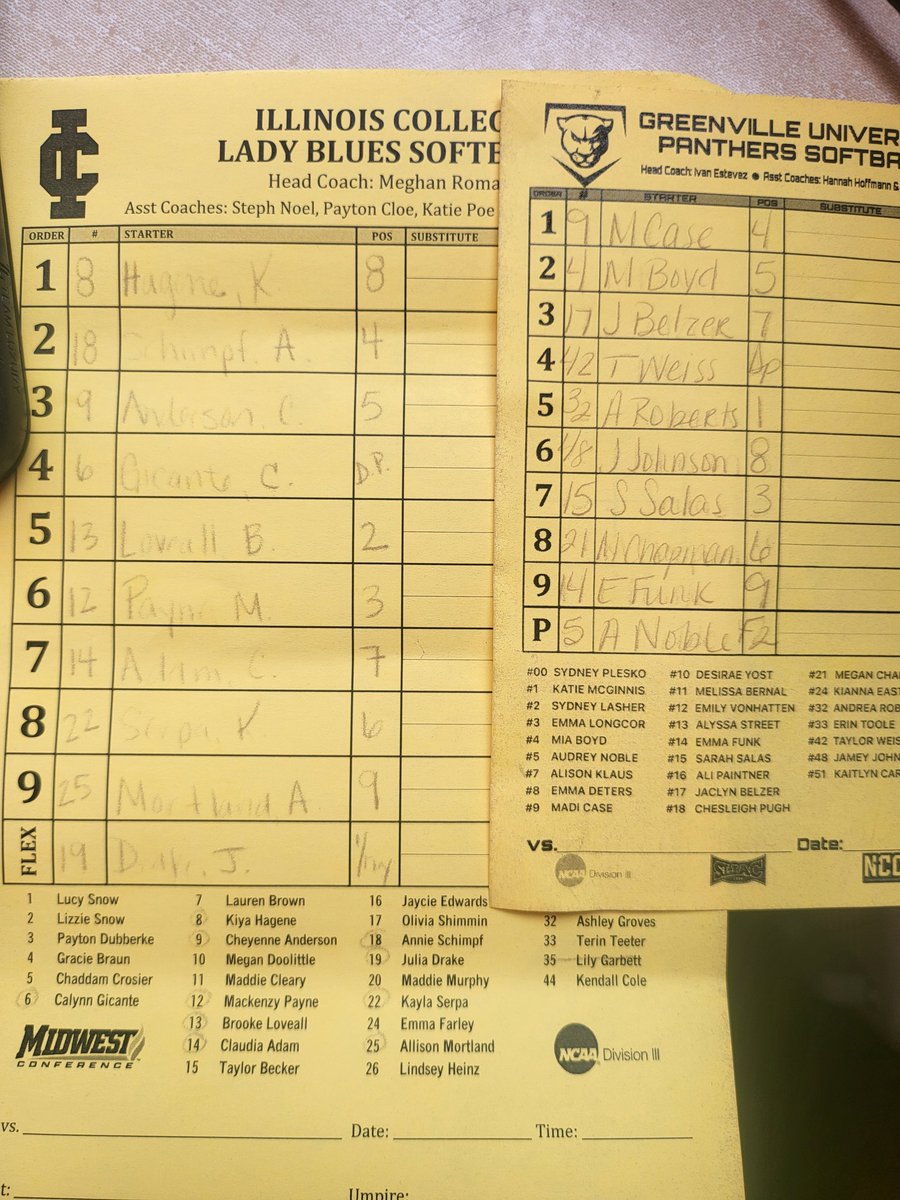 IC
ILLINOIS COLLEG
LADY BLUES SOFTB
Head Coach: Meghan Roma
Asst Coaches: Steph Noel, Payton Cloe, Katie Poe
ORDER # STARTER POS SUBSTITUTE
1 8 Hagene, K 8
2 18 Schimpf, A. 4
3 9 Anderson, C. 5
4 6 Gicante, C. D.P.
5 13 Loveall B. 2
6 12 Payne M. 3
7 14 Adam, C. 7
8 22 Serpa, K 6
9 25 Mortland, A. 9
FLEX 19 J.
1 Lucy Snow 7 Lauren Brown 16 Jaycie Edwards
2 Lizzie Snow 8 Kiya Hagene 17 Olivia Shimmin 32 Ashley Groves
3 Payton Dubberke 9 Cheyenne Anderson 18 Annie Schimpf 33 Terin Teeter
4 Gracie Braun 10 Megan Doolittle 19 Julia Drake 35 Lily Garbett
5 Chaddam Crosier 11 Maddie Cleary 20 Maddie Murphy 44 Kendall Cole
6 Calynn Gicante 12 Mackenzy Payne 22 Kayla Serpa
13 Brooke Loveall 24 Emma Farley
14 Claudia Adam 25 Allison Mortland
15 Taylor Becker 26 Lindsey Heinz
MIDWEST
CONFERENCE
NCAA Division III
vs. Date: Time:
t: Umpire:
GREENVILLE UNIVER
PANTHERS SOFTBA
Head Coach: Ivan Estevez ● Asst Coaches: Hannah Hoffmann &
ORDER # STARTER POS SUBSTITUTE
1 9 M Case 4
2 4 M Boyd 5
3 17 J Belzer 7
4 42 T Weiss dp
5 32 A Roberts 1
6 48 J Johnson 8
7 15 S Salas 3
8 21 M Chapman 6
9 14 E Funk 9
P 5 A Noble F2
#00 SYDNEY PLESKO #10 DESIRAE YOST #21 MEGAN CHA
#1 KATIE MCGINNIS #11 MELISSA BERNAL #24 KIANNA EAST
#2 SYDNEY LASHER #12 EMILY VONHATTEN #32 ANDREA ROB
#3 EMMA LONGCOR #13 ALYSSA STREET #33 ERIN TOOLE
#4 MIA BOYD #14 EMMA FUNK #42 TAYLOR WEIS
#5 AUDREY NOBLE #15 SARAH SALAS #48 JAMEY JOHN
#7 ALISON KLAUS #16 ALI PAINTNER #51 KAITLYN CAR
#8 EMMA DETERS #17 JACLYN BELZER
#9 MADI CASE #18 CHESLEIGH PUGH
vs. Date:
NCAA Division III SLIAC NCC